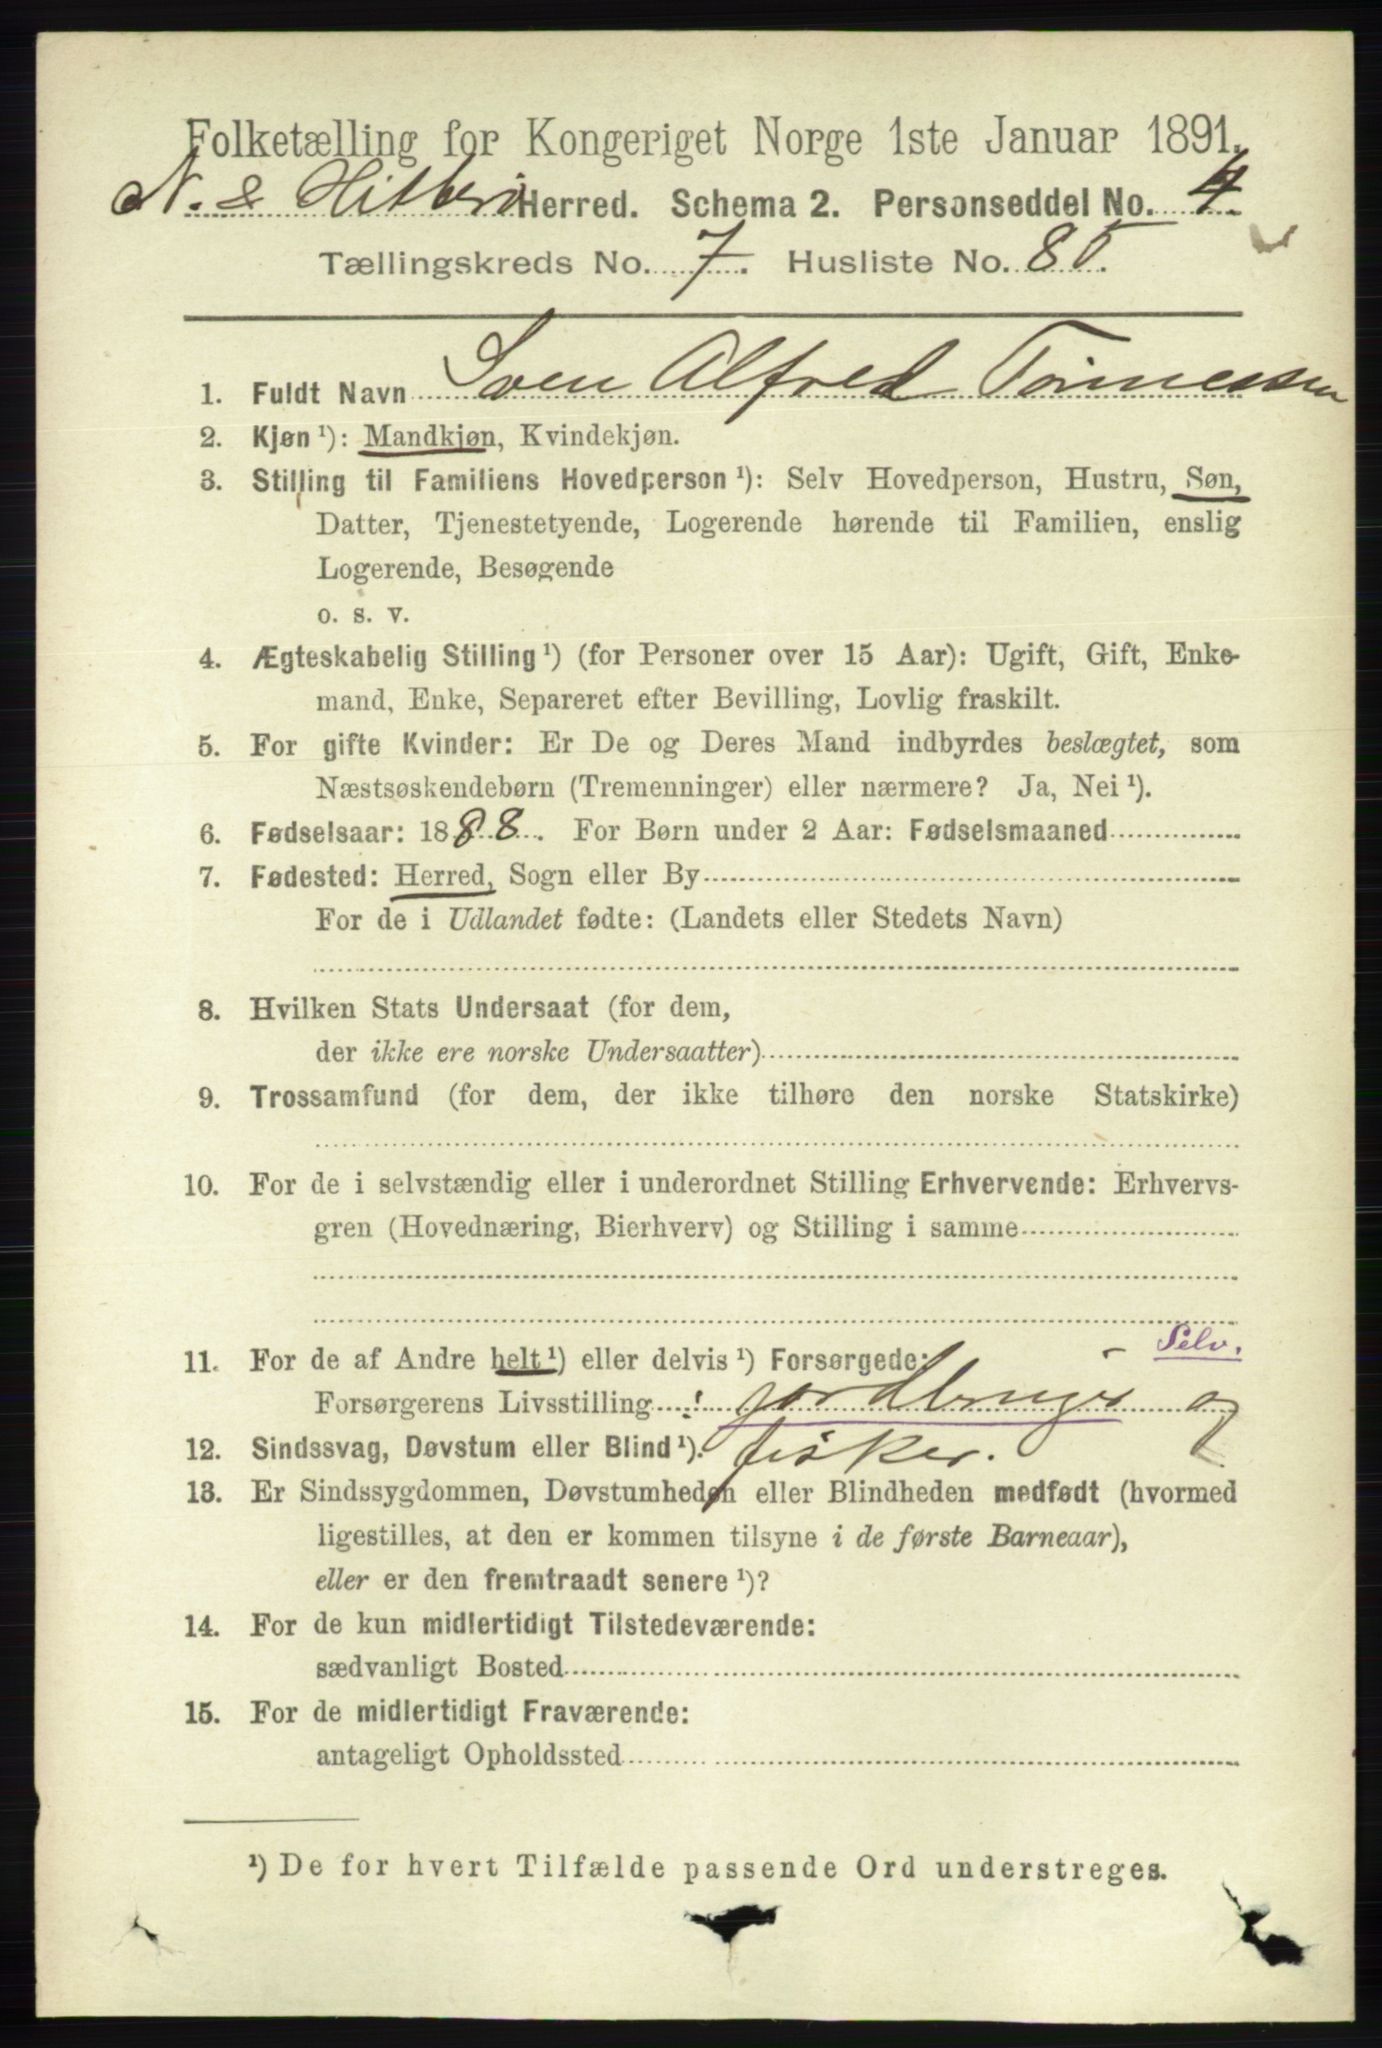 Folketælling for Kongeriget Norge 1ste Januar 1891.
N. & Hitterø Herred. Schema 2. Personseddel No. 4
Tællingskreds No. 7. Husliste No. 85.
1. Fuldt Navn Sven Alfred Tønnessen
2. Kjøn ¹): Mandkjøn, Kvindekjøn.
3. Stilling til Familiens Hovedperson ¹): Selv Hovedperson, Hustru, Søn,
Datter, Tjenestetyende, Logerende hørende til Familien, enslig
Logerende, Besøgende
o. s. v.
4. Ægteskabelig Stilling ¹) (for Personer over 15 Aar): Ugift, Gift, Enke-
mand, Enke, Separeret efter Bevilling, Lovlig fraskilt.
5. For gifte Kvinder: Er De og Deres Mand indbyrdes beslægtet, som
Næstsøskendebørn (Tremenninger) eller nærmere? Ja, Nei ¹).
6. Fødselsaar: 1888. For Børn under 2 Aar: Fødselsmaaned
7. Fødested: Herred, Sogn eller By
For de i Udlandet fødte: (Landets eller Stedets Navn)
8. Hvilken Stats Undersaat (for dem,
der ikke ere norske Undersaatter)
9. Trossamfund (for dem, der ikke tilhøre den norske Statskirke)
10. For de i selvstændig eller i underordnet Stilling Erhvervende: Erhvervs-
gren (Hovednæring, Bierhverv) og Stilling i samme
Selv.
11. For de af Andre helt ¹) eller delvis ¹) Forsørgede:
Forsørgerens Livsstilling : jordbrugs- og
12. Sindssvag, Døvstum eller Blind ¹). fisker.
13. Er Sindssygdommen, Døvstumheden eller Blindheden medfødt (hvormed
ligestilles, at den er kommen tilsyne i de første Barneaar),
eller er den fremtraadt senere ¹)?
14. For de kun midlertidigt Tilstedeværende:
sædvanligt Bosted
15. For de midlertidigt Fraværende:
antageligt Opholdssted
¹) De for hvert Tilfælde passende Ord understreges.